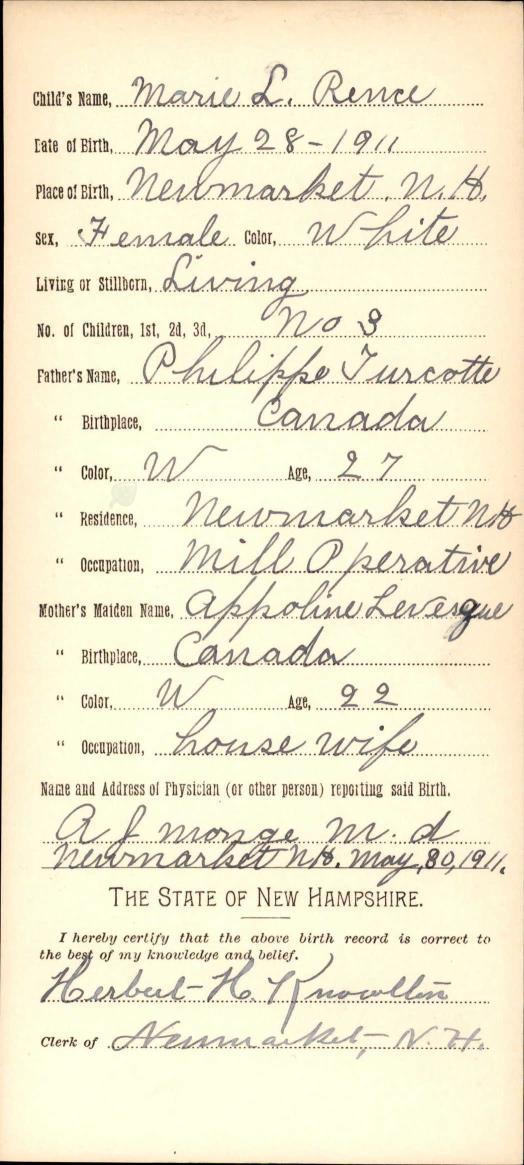 Child's Name, Marie L. Rence
Date of Birth, May 28-1911
Place of Birth, Newmarket, N.H.
Sex, Female Color, White
Living or Stillborn, Living
No. of Children, 1st, 2d, 3d, No 3
Father's Name, Philippe Turcotte
" Birthplace, Canada
" Color, W Age, 27
" Residence, Newmarket NH
" Occupation, Mill Operative
Mother's Maiden Name, Appoline Levergue
" Birthplace, Canada
" Color, W Age, 22
" Occupation, house wife
Name and Address of Physician (or other person) reporting said Birth.
A J Monge M. d
Newmarket NH. May, 30, 1911.
THE STATE OF NEW HAMPSHIRE.
I hereby certify that the above birth record is correct to
the best of my knowledge and belief.
Herbert H. Knowlton
Clerk of Newmarket, N. H.